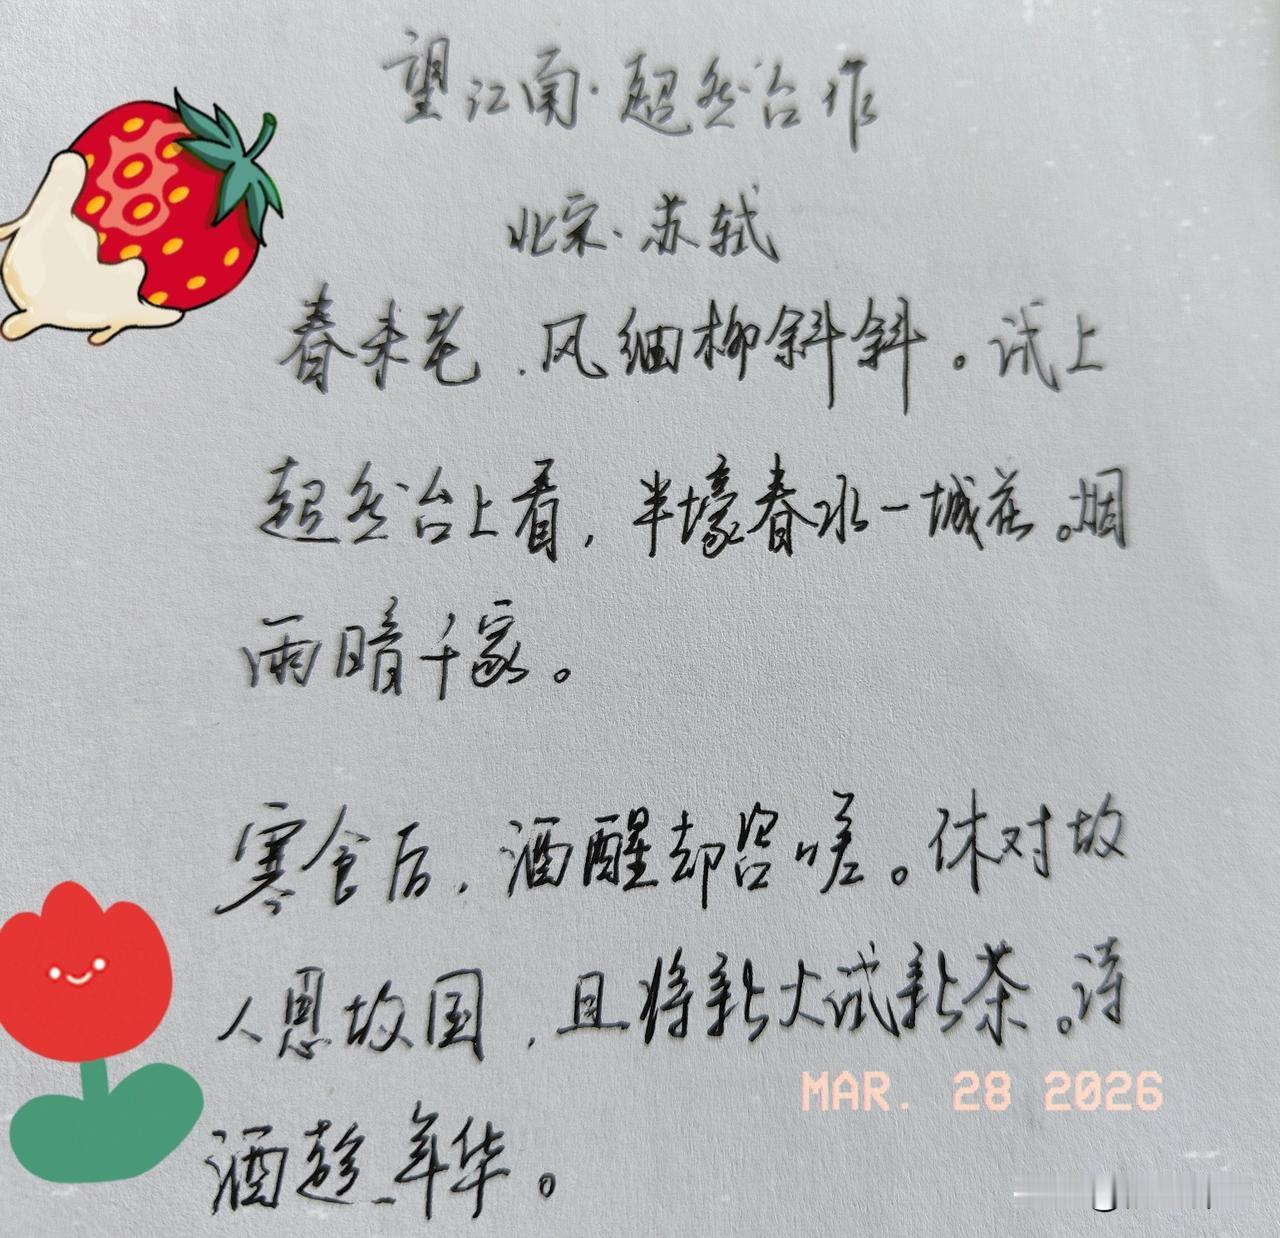 望江南·超然台作
北宋·苏轼
春未老，风细柳斜斜。试上
超然台上看，半壕春水一城花。烟
雨暗千家。
寒食后，酒醒却咨嗟。休对故
人思故国，且将新火试新茶。诗
酒趁年华。
MAR. 28 2026